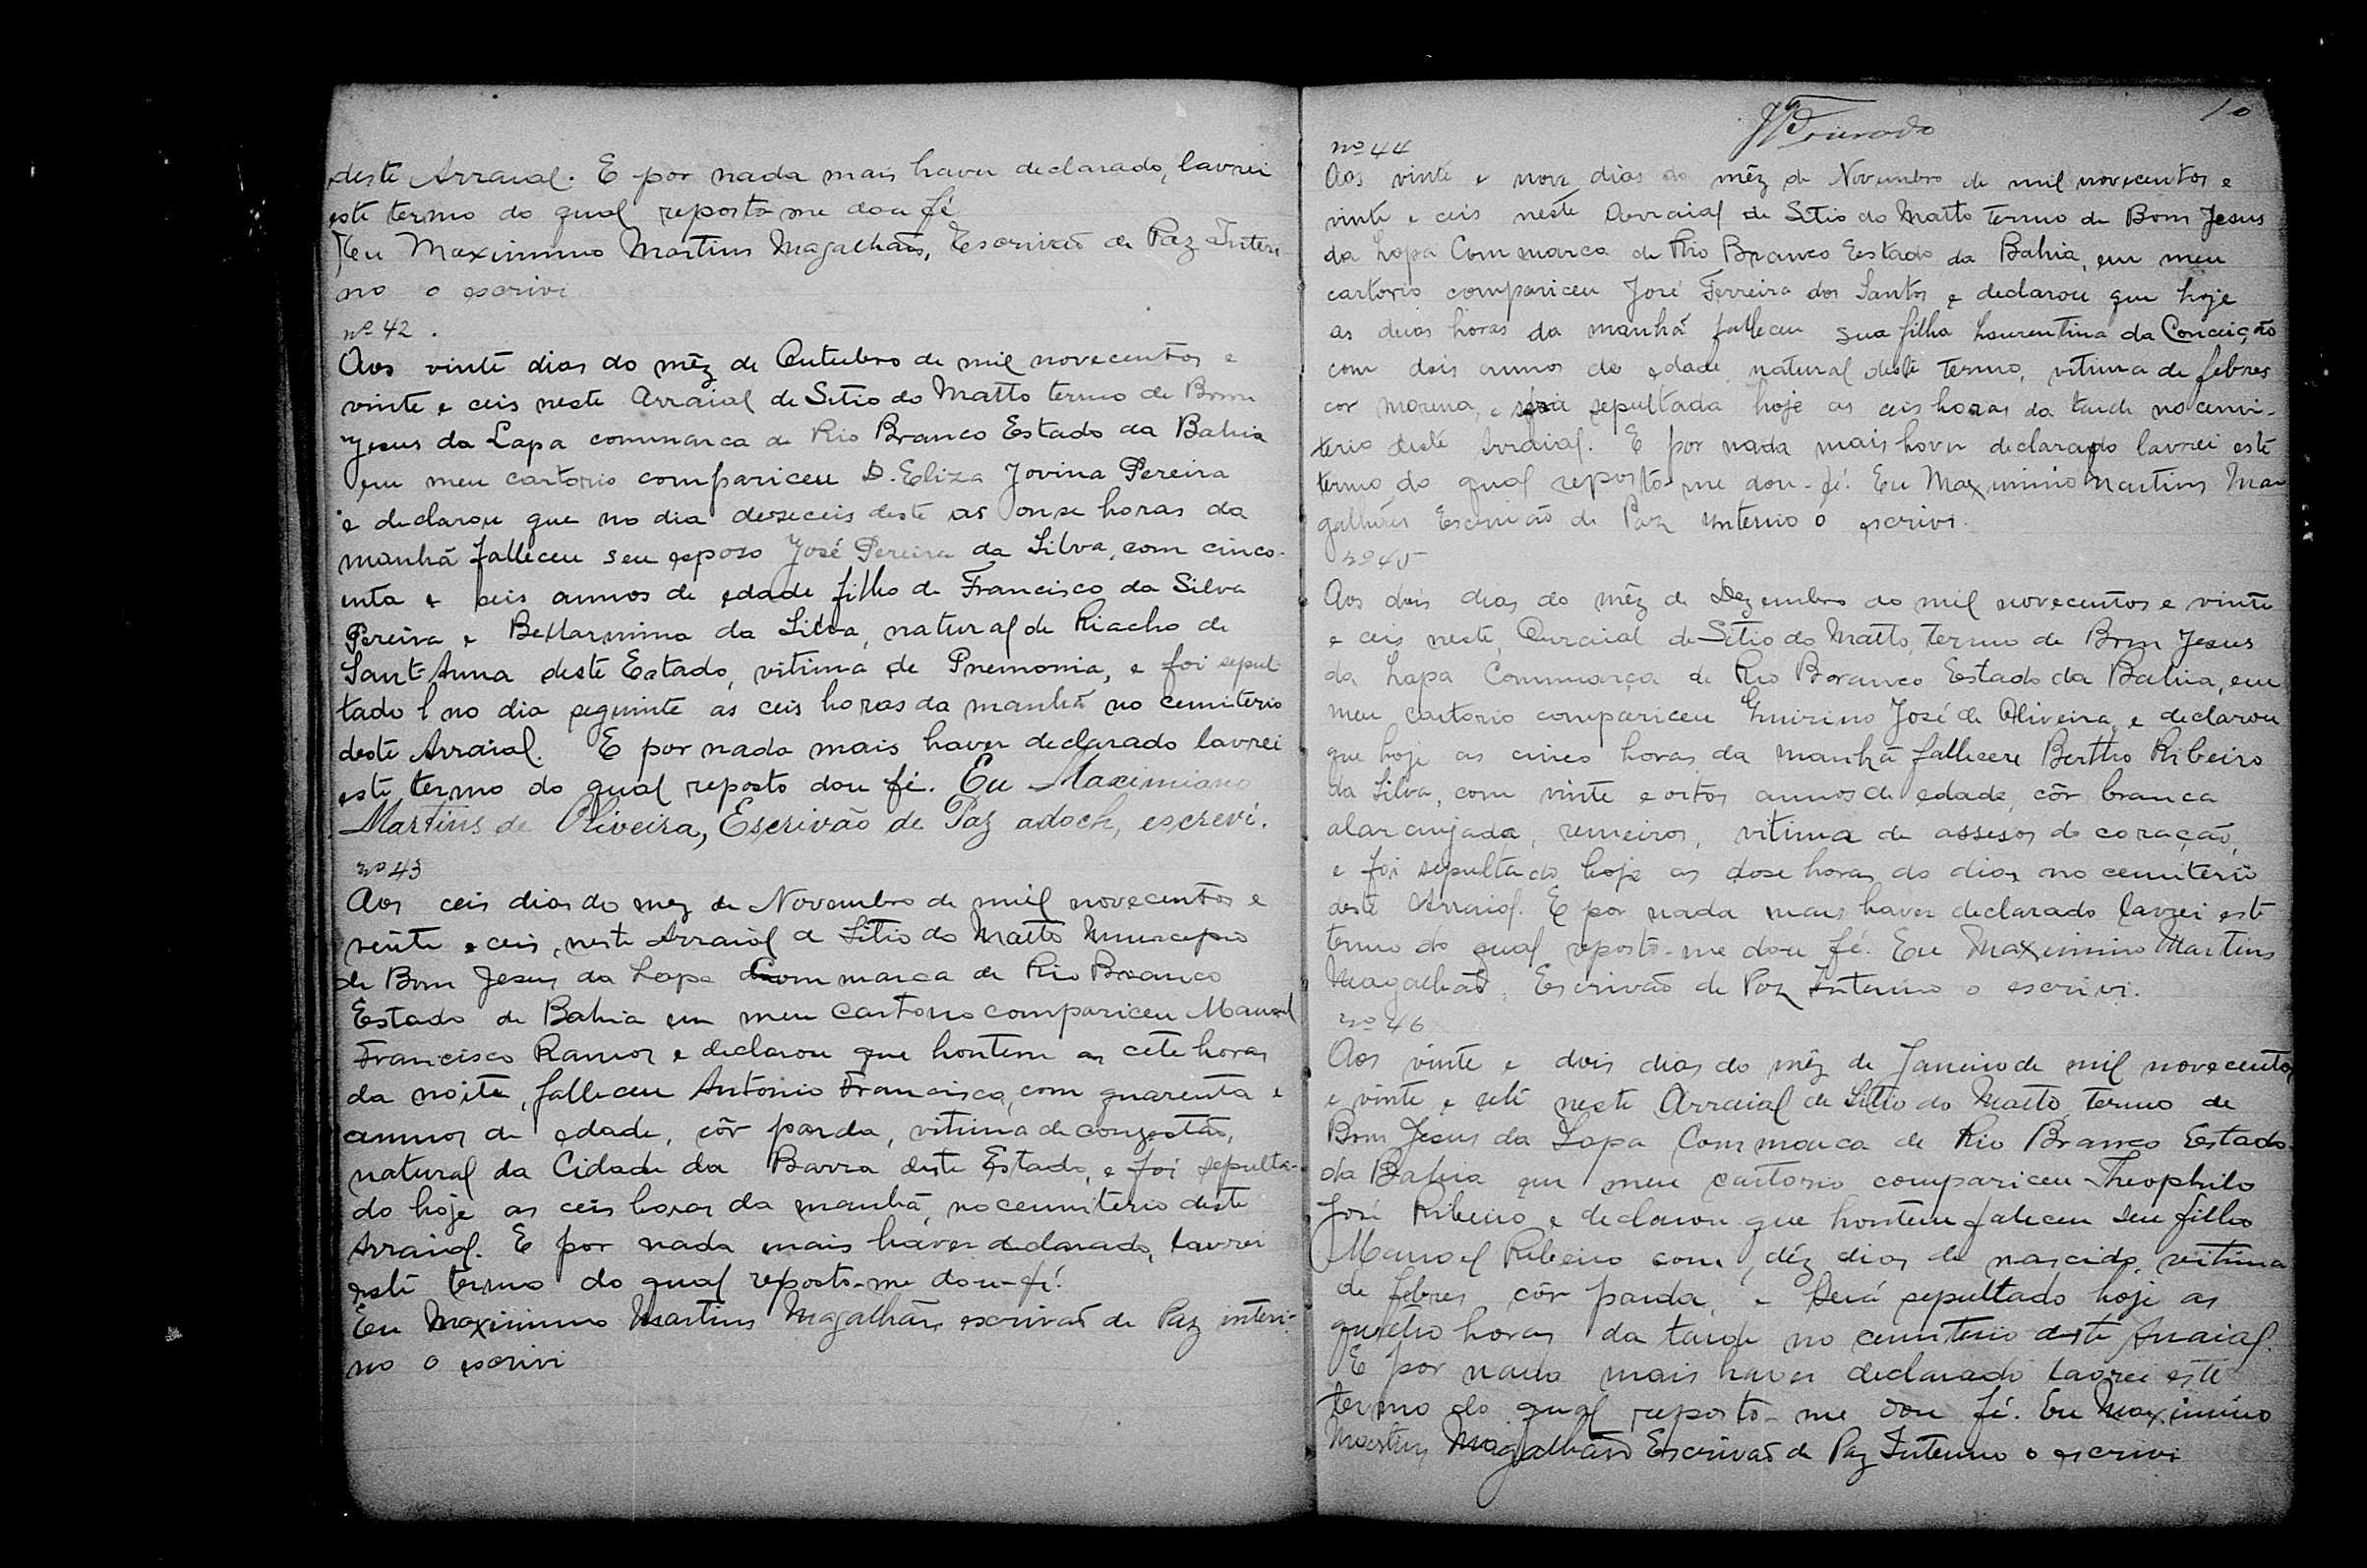 deste Arraial. E por nada mais haver declarado, lavrei
este termo do qual reporto-me dou fé
Eu Maximino Martins Magalhães, Escrivão de Paz Interi-
no o escrivi
nº 42.
Aos vinte dias do mêz de Outubro de mil novecentos e
vinte e ceis neste Arraial de Sitio do Matto termo de Bom
Jesus da Lapa commarca de Rio Branco Estado da Bahia
em meu cartorio compariceu D. Eliza Jovina Pereira
e declarou que no dia dezeceis deste as onse horas da
manhã falleceu seu esposo José Pereira da Silva, com cinco-
enta e seis annos de edade filho de Francisco da Silva
Pereira e Bellarmina da Silva, natural de Riacho de
Sant Anna deste Estado, vitima de Pnemonia, e foi sepul-
tado no dia seguinte as ceis horas da manhã no cemiterio
deste Arraial. E por nada mais haver declarado lavrei
este termo do qual reposto dou fé. Eu Maximiano
Martins de Oliveira, Escrivão de Paz adoch, escreví.
nº 43
Aos ceis dias do mez de Novembro de mil novecentos e
vinte e ceis, neste Arraial de Sitio do Matto Municepio
de Bom Jesus da Lapa Commarca de Rio Branco
Estado de Bahia em meu Cartorio compariceu Manoel
Francisco Ramos e declarou que hontem as cete horas
da noite, falleceu Antonio Francisco, com quarenta e
annos de edade, côr parda, vitima de congestão,
natural da Cidade da Barra deste Estado, e foi sepulta-
do hoje as ceis horas da manhã, no cemiterio deste
Arraial. E por nada mais haver declarado, lavrei
este termo do qual reposto-me dou-fé.
Eu Maximino Martins Magalhães escrivão de Paz interi-
no o escrivi
10
nº 44
Aos vinte e nove dias do mêz de Novembro de mil novecentos e
vinte e ceis neste Arraial de Sitio do Matto termo de Bom Jesus
da Lapa Commarca de Rio Branco Estado da Bahia, em meu
cartorio compariceu José Ferreira dos Santos e declarou que hoje
as duas horas da manhã falleceu sua filha Laurentina da Conceição
com dois annos de edade natural deste termo, vitima de febres
cor morena, e será sepultada hoje as ceis horas da tarde no cemi-
terio deste Arraial. E por nada mais haver declarado lavrei este
termo do qual reposto-me dou-fé. Eu Maximino Martins Ma-
galhães Escrivão de Paz Interino o escrivi.
nº 45
Aos dois dias do mêz de Dezembro do mil novecentos e vinte
e ceis neste, Arraial de Sitio do Matto, termo de Bom Jesus
da Lapa Commarca de Rio Branco Estado da Bahia, em
meu cartorio compariceu Guirino José de Oliveira, e declarou
que hoje as cinco horas da manhã fallecere Bertho Ribeiro
da Silva, com vinte e oitos annos de edade, côr branca
alaranjada, remeiros, vitima de assesos do coração,
e foi sepultado hoje as dose horas do dia no cemiterio
deste Arraial. E por nada mais haver declarado lavrei este
termo do qual reposto-me dou fé. Eu Maximino Martins
Magalhães, Escrivão de Paz Interino o escrivi.
nº 46
Aos vinte e dois dias do mêz de Janeiro de mil novecentos
e vinte e sete neste Arraial de Sitio do Matto, termo de
Bom Jesus da Lapa Commarca de Rio Branco Estado
da Bahia em meu cartorio compariceu Theophilo
José Ribeiro e declarou que hontem faleceu seu filho
Manoel Ribeiro com dêz dias de nascido, vitima
de febres côr parda, e Será sepultado hoje as
quatro horas da tarde no cemiterio deste Arraial.
E por nada mais haver declarado lavrei este
termo do qual reposto-me dou fé. Eu Maximino
Martins Magalhães Escrivão de Paz Interino o escrivi